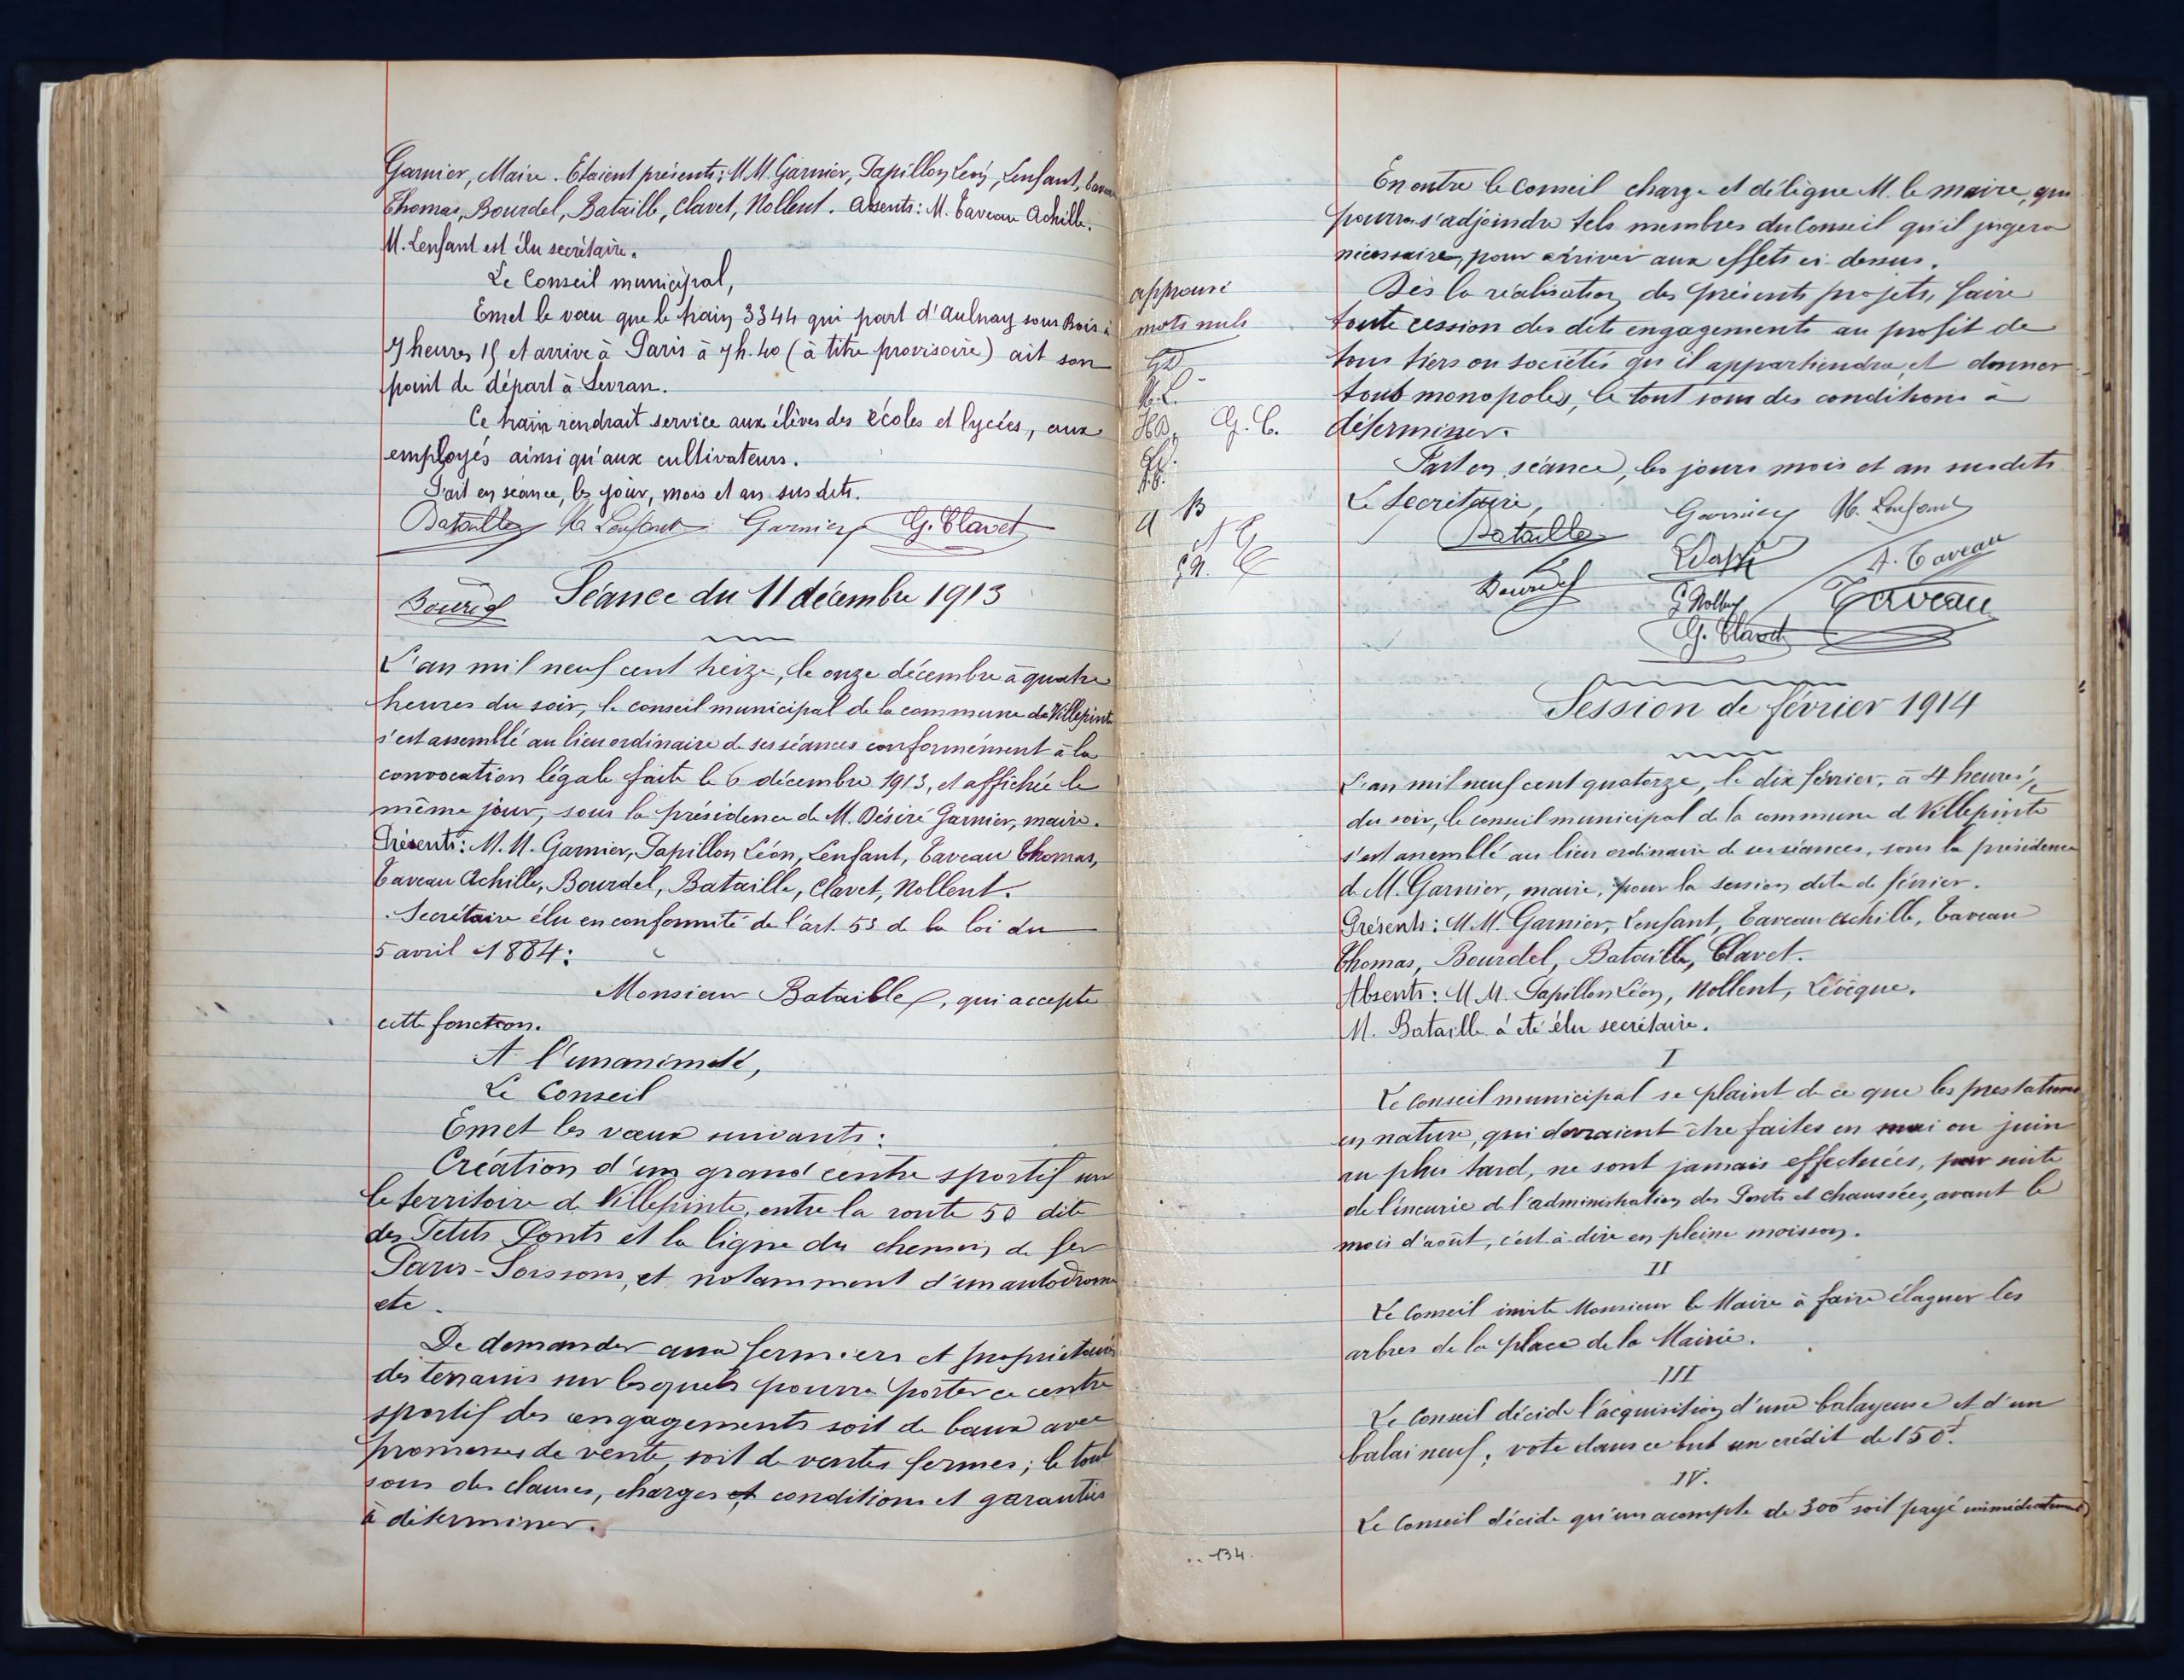 Garnier, Maire. Etaient présents: M.M. Garnier, Papillon Léon, Lenfant, Taveau
Thomas, Bourdel, Bataille, Clavet, Nollent. Absents: M. Taveau Achille.
M. Lenfant est élu secrétaire.
Le Conseil municipal,
Emet le vœu que le train 3344 qui part d'Aulnay sous Bois à
7 heures 15 et arrive à Paris à 7h.40 (à titre provisoire) ait son
point de départ à Sevran.
Ce train rendrait service aux élèves des écoles et lycées, aux
employés ainsi qu'aux cultivateurs.
Fait en séance, les jour, mois et an sus dits.
Bataille M. Lenfant Garnier G. Clavet
Bourdel Séance du 11 décembre 1913
L'an mil neuf cent treize, le onze décembre à quatre
heures du soir, le conseil municipal de la commune de Villepinte
s'est assemblé au lieu ordinaire de ses séances conformément à la
convocation légale faite le 6 décembre 1913, et affichée le
même jour, sous la présidence de M. Désiré Garnier, maire.
Présents: M.M. Garnier, Papillon Léon, Lenfant, Taveau Thomas,
Taveau Achille, Bourdel, Bataille, Clavet, Nollent.
Secrétaire élu en conformité de l'art. 53 de la loi du
5 avril 1884:
Monsieur Bataille, qui accepte
cette fonction.
A l'unanimité,
Le Conseil
Emet les vœux suivants:
Création d'un grand centre sportif sur
le territoire de Villepinte, entre la route 50 dite
des Petits Ponts et la ligne du chemin de fer
Paris-Soissons, et notamment d'un autodrome
etc.
De demander aux fermiers et propriétaires
des terrains sur lesquels pourra porter ce centre
sportif des engagements soit de baux avec
promesses de vente, soit de ventes fermes; le tout
sous des clauses, charges et conditions et garanties
à déterminer.
approuvé
mots nuls
GD
M.L.
HB. G.C.
A B
.. 134.
En outre le Conseil charge et délègue M. le maire, qui
pourra s'adjoindre tels membres du Conseil qu'il jugera
nécessaire, pour arriver aux effets ci-dessus.
Dès la réalisation des présents projets, faire
toute cession des dits engagements au profit de
tous tiers ou sociétés qu'il appartiendra, et donner
tous monopoles, le tout sous des conditions à
déterminer.
Fait en séance, les jours mois et an susdits
Le Secrétaire, Garnier M. Lenfant
Bataille
A. Taveau
Bourdel G. Nollent Taveau
G. Clavet
Session de février 1914
L'an mil neuf cent quatorze, le dix février, à 4 heures 1/2
du soir, le conseil municipal de la commune de Villepinte
s'est assemblé au lieu ordinaire de ses séances, sous la présidence
de M. Garnier, maire, pour la session dite de février.
Présents: M.M. Garnier, Lenfant, Taveau Achille, Taveau
Thomas, Bourdel, Bataille, Clavet.
Absents: M.M. Papillon Léon, Nollent, Lévêque.
M. Bataille à été élu secrétaire.
I
Le Conseil municipal se plaint de ce que les prestations
en nature, qui devraient être faites en mai ou juin
au plus tard, ne sont jamais effectuées, par suite
de l'incurie de l'administration des Ponts et chaussées, avant le
mois d'août, c'est à dire en pleine moisson.
II
Le Conseil invite Monsieur le Maire à faire élaguer les
arbres de la place de la Mairie.
III
Le Conseil décide l'acquisition d'une balayeuse et d'un
balai neuf; vote dans ce but un crédit de 150f.
IV.
Le Conseil décide qu'un acompte de 300f soit payé immédiatement